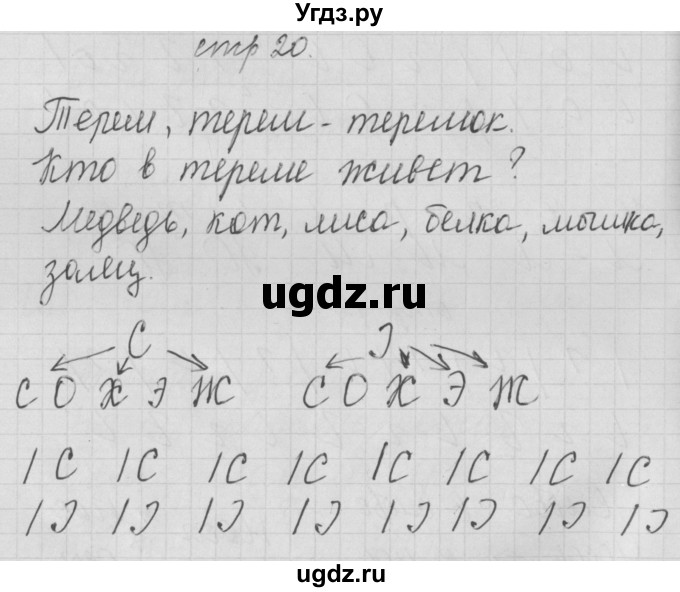 Угдз.ру
стр 20.
Терем, терем - теремок.
Кто в тереме живет?
Медведь, кот, лиса, белка, мышка,
ugdz.ru
С Э
С О Х Э Ж С О Х Э Ж
/ С / С / С / С / С / С / С / С
/ Э / Э / Э / Э / Э / Э / Э / Э
ugdz.ru